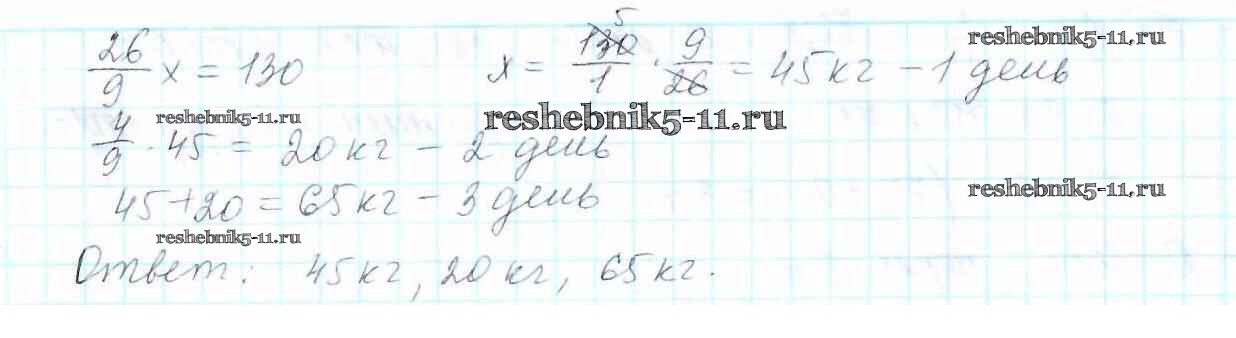 5
reshebnik5-11.ru
26/9 x = 130 x = 130/1 · 9/26 = 45 кг – 1 день
reshebnik5-11.ru reshebnik5-11.ru
4/9 · 45 = 20 кг – 2 день
reshebnik5-11.ru
45 + 20 = 65 кг – 3 день
reshebnik5-11.ru
Ответ: 45 кг, 20 кг, 65 кг.